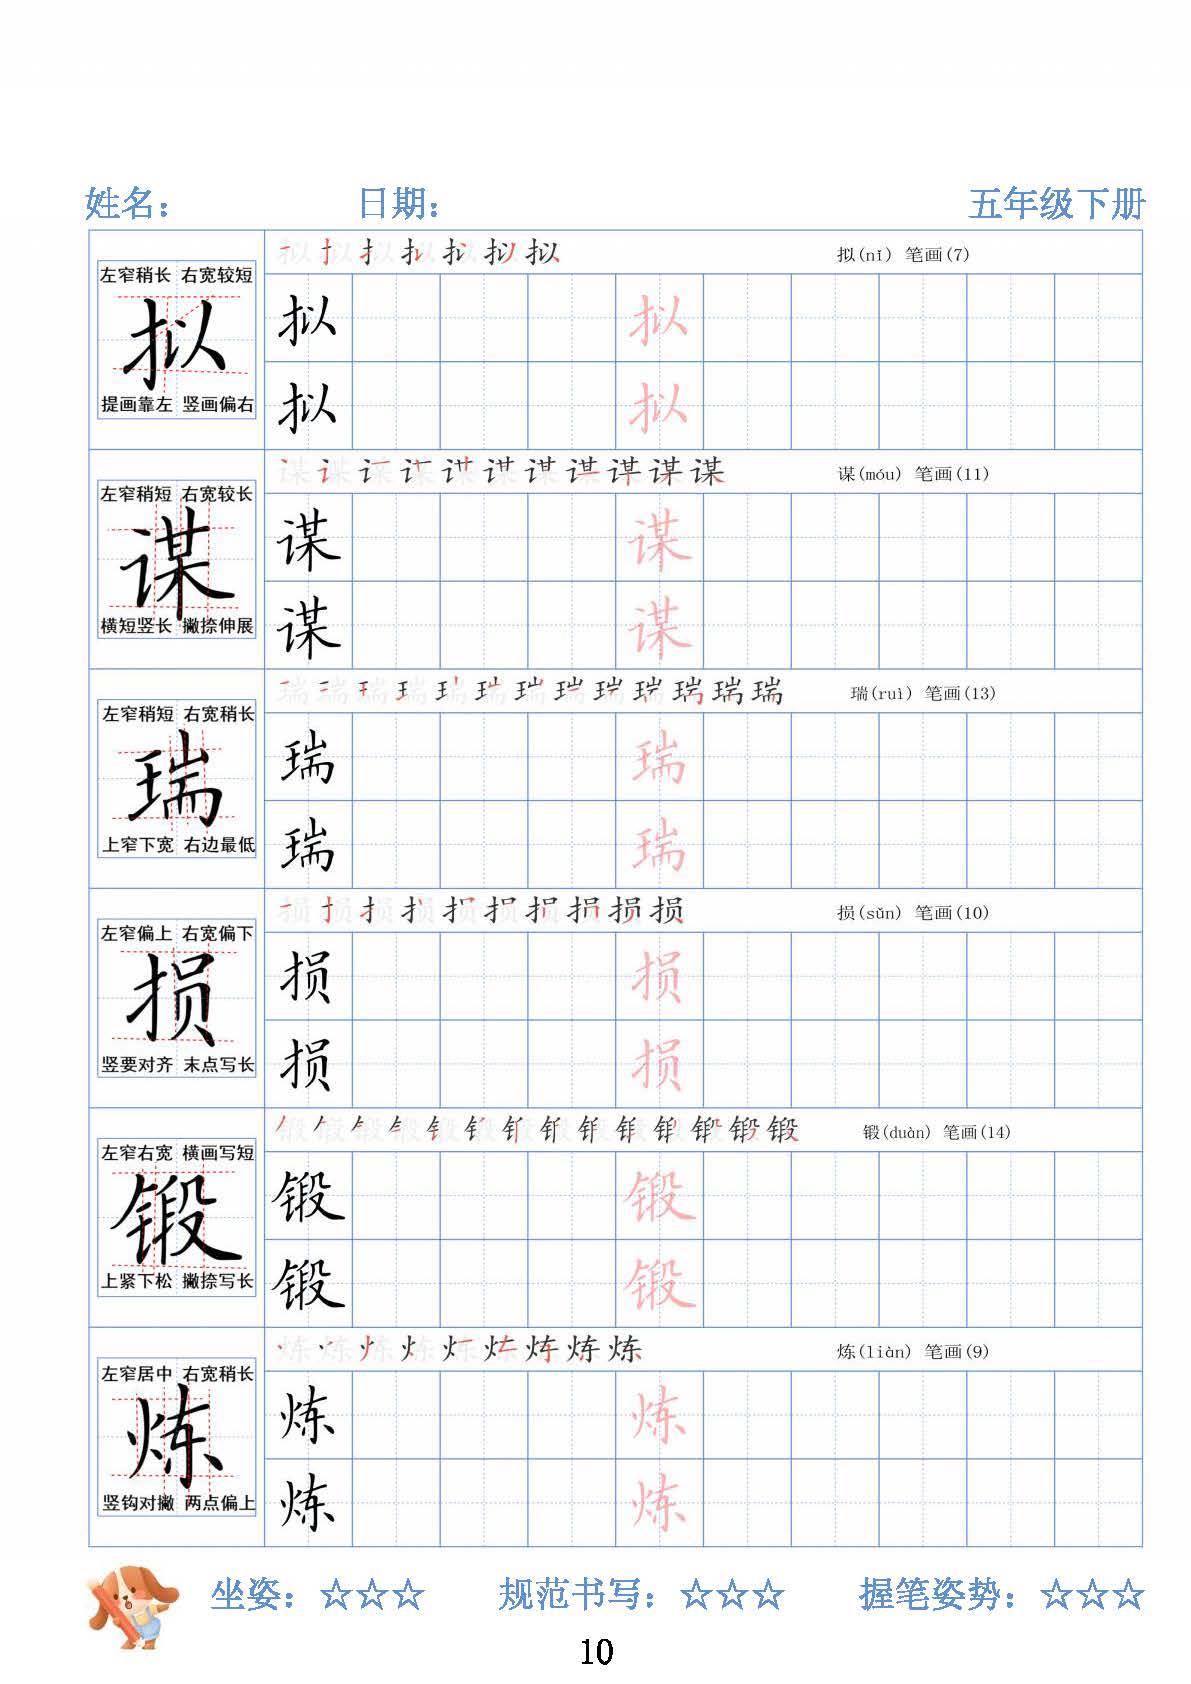 姓名： 日期： 五年级下册
拟(nǐ) 笔画(7)
左窄稍长 右宽较短
拟
提画靠左 竖画偏右
拟 拟
拟 拟
谋(móu) 笔画(11)
左窄稍短 右宽较长
谋
横短竖长 撇捺伸展
谋 谋
谋 谋
瑞(ruì) 笔画(13)
左窄稍短 右宽稍长
瑞
上窄下宽 右边最低
瑞 瑞
瑞 瑞
损(sǔn) 笔画(10)
左窄偏上 右宽偏下
损
竖要对齐 末点写长
损 损
损 损
锻(duàn) 笔画(14)
左窄右宽 横画写短
锻
上紧下松 撇捺写长
锻 锻
锻 锻
炼(liàn) 笔画(9)
左窄居中 右宽稍长
炼
竖钩对撇 两点偏上
炼 炼
炼 炼
坐姿：☆☆☆ 规范书写：☆☆☆ 握笔姿势：☆☆☆
10